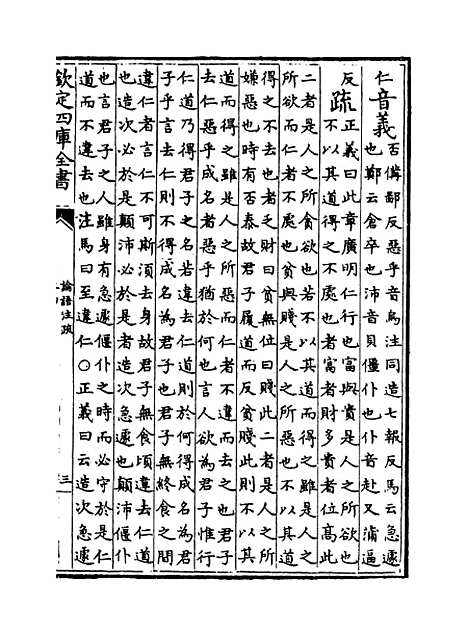 仁音義否備鄙反惡乎音烏注同造七報反馬云急遽
也鄭云倉卒也沛音貝僵也仆音赴又蒲逼
反疏正義曰此章廣明仁行也富與貴是人之所欲也
不以其道得之不處也者富者財多貴者位高此
二者是人之所貪欲也若不以其道而得之雖是人之
所欲而仁者不處也貧與賤是人之所惡也不以其道
得之不去也者乏財曰貧無位曰賤此二者是人之所
嫌惡也時有否泰故君子履道而反貧賤此則不以其
道而得之雖是人之所惡而仁者不違而去之也君子
去仁惡乎成名者惡乎猶於何也言人欲為君子惟行
仁道乃得君子之名若違去仁道則於何得成名為君
子乎言去仁則不得成名為君子也君子無終食之間
違仁者言仁不可斯須去身故君子無食頃違去仁道
也造次必於是顛沛必於是者造次急遽也顛沛偃仆
也言君子之人雖身有急遽偃仆之時而必守於是仁
道而不違去也注馬曰至違仁○正義曰云造次急遽
欽定四庫全書
論語注疏
三